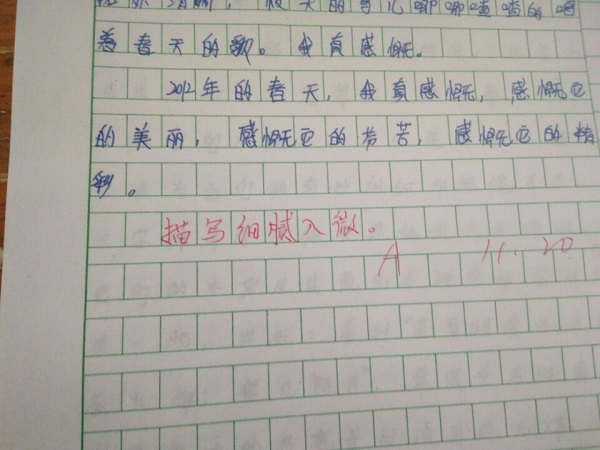 清脆，枝头的鸟儿唧唧喳喳的唱
着春天的歌。我真感慨。
2012年的春天，我真感慨，感慨它
的美丽，感慨它的劳苦，感慨它的精
彩。
描写细腻入微。
A 11.20